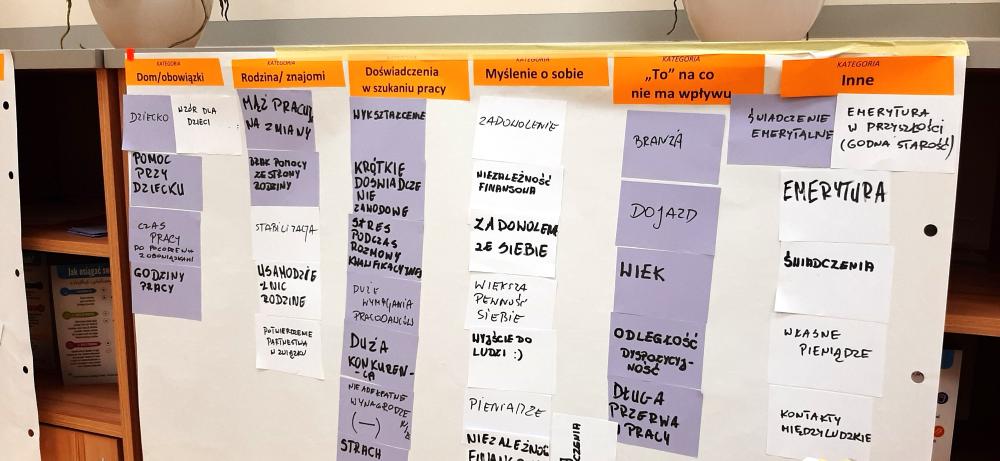 KATEGORIA
Dom/obowiązki
DZIECKO
WZÓR DLA
DZIECI
POMOC
PRZY
DZIECKU
CZAS
PRACY
DO POGODZENIA
Z OBOWIĄZKAMI
GODZINY
PRACY
KATEGORIA
Rodzina/ znajomi
MĄŻ PRACUJE
NA ZMIANY
BRAK POMOCY
ZE STRONY
RODZINY
STABILIZACJA
USAMODZIE
LNIĆ
RODZINĘ
POTWIERDZENIE
PARTNERSTWA
W ZWIĄZKU
KATEGORIA
Doświadczenia
w szukaniu pracy
WYKSZTAŁCENIE
KRÓTKIE
DOŚWIADCZE
NIE
ZAWODOWE
STRES
PODCZAS
ROZMOWY
KWALIFIKACYJNEJ
DUŻE
WYMAGANIA
PRACODAWCÓW
DUŻA
KONKUREN-
CJA
NIEADEKWATNE
WYNAGRODZE
(—)
STRACH
KATEGORIA
Myślenie o sobie
ZADOWOLENIE
NIEZALEŻNOŚĆ
FINANSOWA
ZADOWOLENIE
ZE SIEBIE
WIĘKSZA
PEWNOŚĆ
SIEBIE
WYJŚCIE DO
LUDZI :)
PIENIĄDZE
NIEZALEŻNOŚĆ
KATEGORIA
„To" na co
nie ma wpływu
BRANŻA
DOJAZD
WIEK
ODLEGŁOŚĆ
DYSPOZYCYJ-
NOŚĆ
DŁUGA
PRZERWA
W PRACY
KATEGORIA
Inne
ŚWIADCZENIE
EMERYTALNE
EMERYTURA
W PRZYSZŁOŚCI
(GODNA STAROŚĆ)
EMERYTURA
ŚWIADCZENIA
WŁASNE
PIENIĄDZE
KONTAKTY
MIĘDZYLUDZKIE
Jak osiągać